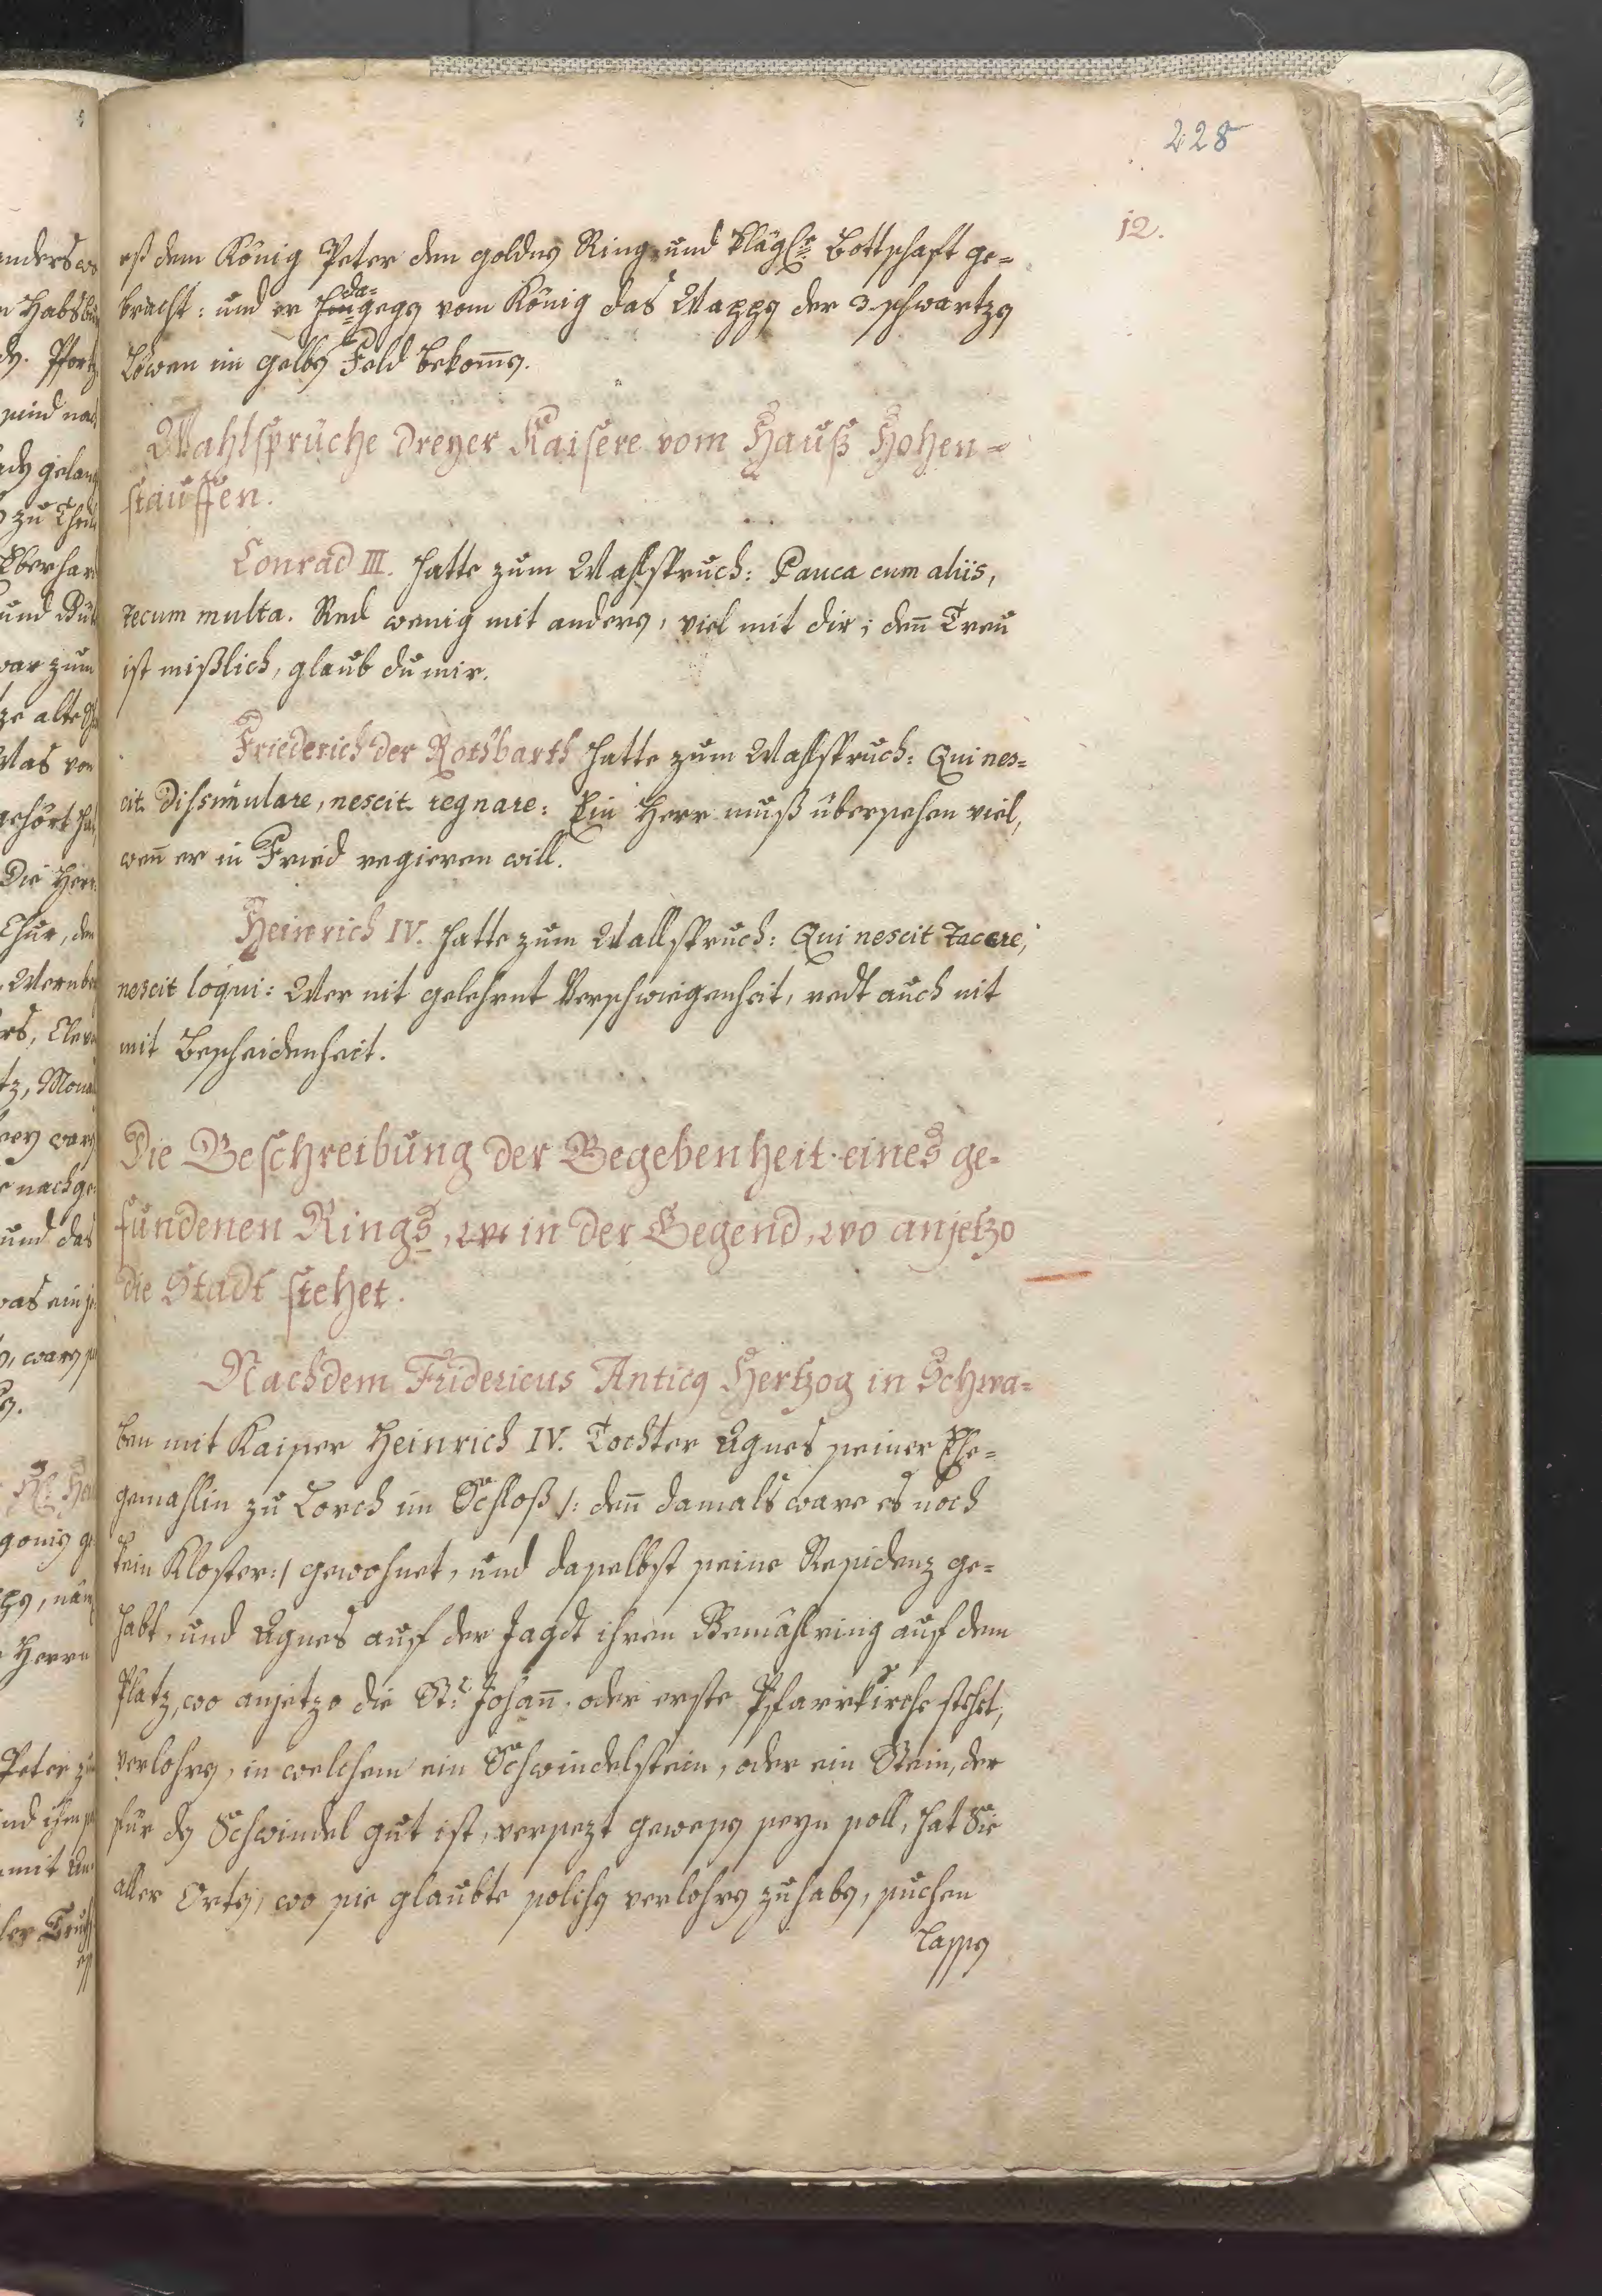 228
12.
eß dem König Peter den goldnen Ring und klägl. Bottschaft ge-
bracht: und er dagegen vom König das Wappen der 3. schwartzen
Löwen im gelben Feld bekom̄en.
Wahlsprüche dreyer Kaisere vom Hauß Hohen-
stauffen.
Conrad III. hatte zum Wahlspruch: Pauca cum aliis,
tecum multa. Red wenig mit andern, viel mit dir; den̄ Treu
ist mißlich, glaub du mir.
Friederich der Rothbarth hatte zum Wahlspruch: Qui nes-
cit dissimulare, nescit regnare: Ein Herr muß übersehen viel,
wen̄ er in Fried regieren will.
Heinrich IV. hatte zum Wallspruch: Qui nescit tacere,
nescit loqui: Wer nit gelehrnt Verschwiegenheit, redt auch nit
mit Bescheidenheit.
Die Beschreibung der Begebenheit eines ge-
fundenen Rings, in der Gegend, wo anjetzo
die Stadt stehet.
Nachdem Fridericus Antiq Hertzog in Schwa-
ben mit Kaiser Heinrich IV. Tochter Agnes seiner Ehe-
gemahlin zu Lorch im Schloß /: den̄ damals ware es noch
kein Kloster :/ gewohnet, und daselbst seine Residenz ge-
habt, und Agnes auf der Jagdt ihren Gemahlring auf dem
Platz, wo anjetzo die St. Johan̄. oder erste Pfarrkirche stehet,
verlohren, in welchem ein Schwindelstein, oder ein Stein, der
für den Schwindel gut ist, versezt gewesen seyn soll, hat Sie
aller Orten, wo sie glaubte solchen verlohren zu haben, suchen
lassen